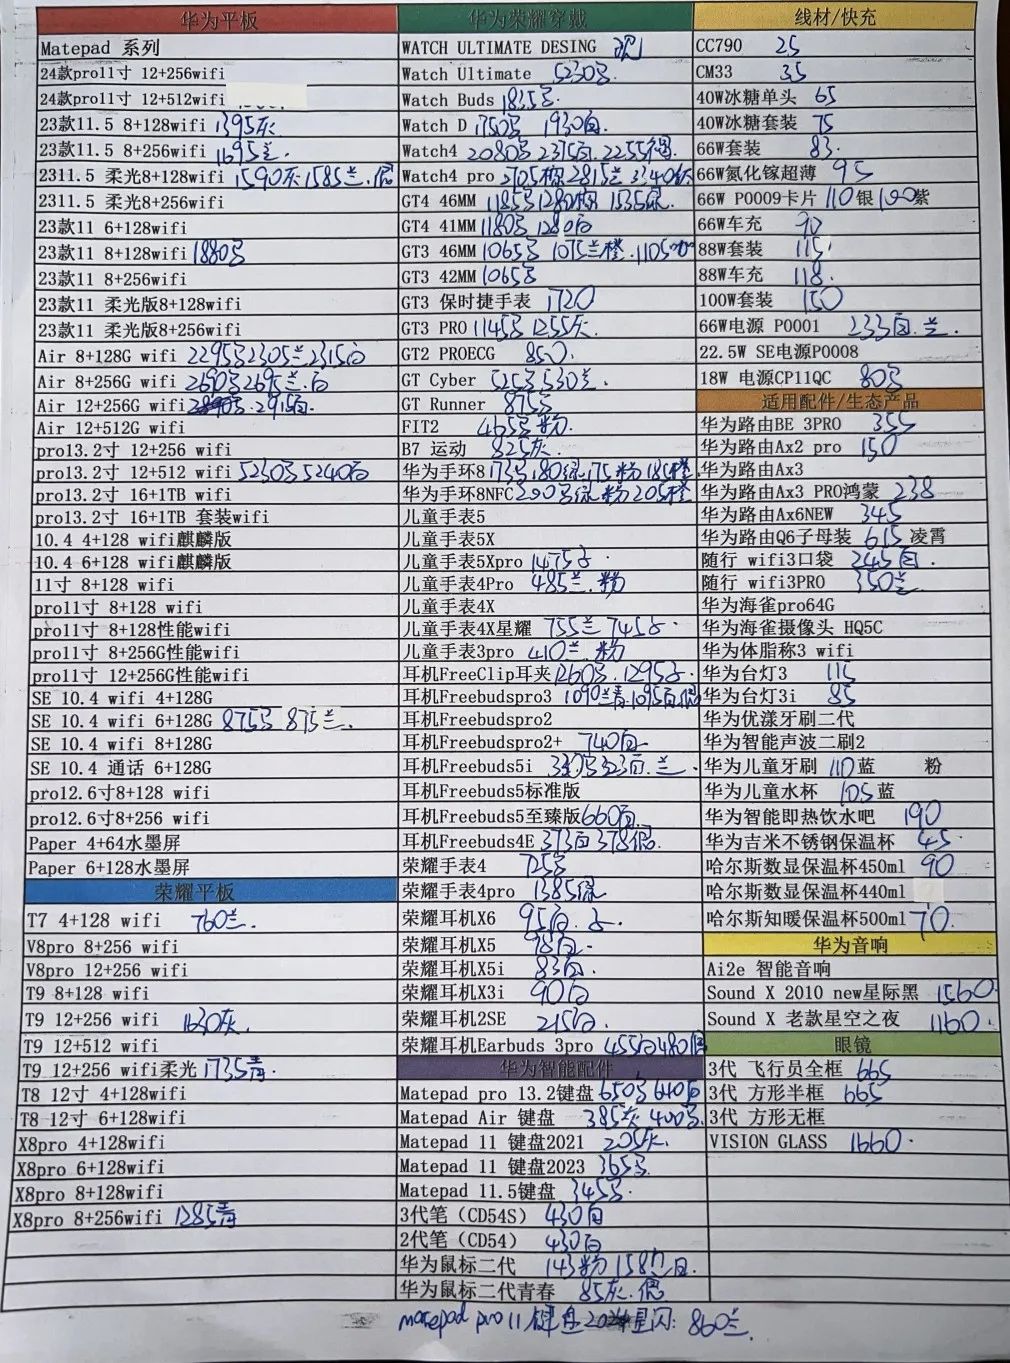 华为平板
Matepad 系列
24款pro11寸 12+256wifi
24款pro11寸 12+512wifi
23款11.5 8+128wifi 1395灰.
23款11.5 8+256wifi 1695兰.
2311.5 柔光8+128wifi 1590灰 1585兰.
2311.5 柔光8+256wifi
23款11 6+128wifi
23款11 8+128wifi 1880号
23款11 8+256wifi
23款11 柔光版8+128wifi
23款11 柔光版8+256wifi
Air 8+128G wifi 2295号2305兰2315白
Air 8+256G wifi 2690号2695兰.白
Air 12+256G wifi 2915白.
Air 12+512G wifi
pro13.2寸 12+256 wifi
pro13.2寸 12+512 wifi 5230号5240白
pro13.2寸 16+1TB wifi
pro13.2寸 16+1TB 套装wifi
10.4 4+128 wifi麒麟版
10.4 6+128 wifi麒麟版
11寸 8+128 wifi
pro11寸 8+128 wifi
pro11寸 8+128性能wifi
pro11寸 8+256G性能wifi
pro11寸 12+256G性能wifi
SE 10.4 wifi 4+128G
SE 10.4 wifi 6+128G 875号 875兰.
SE 10.4 wifi 8+128G
SE 10.4 通话 6+128G
pro12.6寸8+128 wifi
pro12.6寸8+256 wifi
Paper 4+64水墨屏
Paper 6+128水墨屏
荣耀平板
T7 4+128 wifi 760兰.
V8pro 8+256 wifi
V8pro 12+256 wifi
T9 8+128 wifi
T9 12+256 wifi 1630灰.
T9 12+512 wifi
T9 12+256 wifi柔光 1735青.
T8 12寸 4+128wifi
T8 12寸 6+128wifi
X8pro 4+128wifi
X8pro 6+128wifi
X8pro 8+128wifi
X8pro 8+256wifi 1285青
华为荣耀穿戴
WATCH ULTIMATE DESING 现
Watch Ultimate 5230号.
Watch Buds 1835号.
Watch D 1750号 1930白.
Watch4 2080号 2375白. 2255褐.
Watch4 pro 2705棕 2815兰 3340钛
GT4 46MM 1185号1280棕 1535绿.
GT4 41MM 1180号 1280白
GT3 46MM 1065号 1075兰橙.1105
GT3 42MM 1065号
GT3 保时捷手表 1720
GT3 PRO 1145号 1255灰.
GT2 PROECG 850.
GT Cyber 525号530兰.
GT Runner 875号
FIT2 465号 粉.
B7 运动 825灰.
华为手环8 173号.180绿.175粉 185橙.
华为手环8NFC 200号绿.粉 205橙
儿童手表5
儿童手表5X
儿童手表5Xpro 1475
儿童手表4Pro 485兰.粉
儿童手表4X
儿童手表4X星耀 755兰 745
儿童手表3pro 410兰.粉
耳机FreeClip耳夹 1260号.1295
耳机Freebudspro3 1090兰青.1095白银
耳机Freebudspro2
耳机Freebudspro2+ 740白
耳机Freebuds5i 323白.兰.
耳机Freebuds5标准版
耳机Freebuds5至臻版 660白.
耳机Freebuds4E 373白 378银.
荣耀手表4 725号
荣耀手表4pro 1385绿
荣耀耳机X6 95白.
荣耀耳机X5 98白.
荣耀耳机X5i 83白.
荣耀耳机X3i 90白
荣耀耳机2SE 215白.
荣耀耳机Earbuds 3pro 455白480
华为智能配件
Matepad pro 13.2键盘 650号 640白
Matepad Air 键盘 385灰 400号.
Matepad 11 键盘2021 205灰.
Matepad 11 键盘2023 365号.
Matepad 11.5键盘 345号.
3代笔（CD54S） 430白
2代笔（CD54） 430白
华为鼠标二代 143粉 158白.
华为鼠标二代青春 85灰.银
matepad pro 11 键盘 星闪: 860兰.
线材/快充
CC790 25
CM33 35
40W冰糖单头 65
40W冰糖套装 75
66W套装 83.
66W氮化镓超薄 95
66W P0009卡片 110银 100紫
66W车充 90
88W套装 115
88W车充 118.
100W套装 150
66W电源 P0001 233白.兰.
22.5W SE电源P0008
18W 电源CP11QC 80号
适用配件/生态产品
华为路由BE 3PRO 355
华为路由Ax2 pro 150
华为路由Ax3
华为路由Ax3 PRO鸿蒙 238
华为路由Ax6NEW 345
华为路由Q6子母装 615 凌霄
随行 wifi3口袋 245白.
随行 wifi3PRO 350兰
华为海雀pro64G
华为海雀摄像头 HQ5C
华为体脂称3 wifi
华为台灯3 115
华为台灯3i 85
华为优漾牙刷二代
华为智能声波二刷2
华为儿童牙刷 110蓝 粉
华为儿童水杯 105蓝
华为智能即热饮水吧 190
华为吉米不锈钢保温杯 45
哈尔斯数显保温杯450ml 90
哈尔斯数显保温杯440ml
哈尔斯知暖保温杯500ml 70
华为音响
Ai2e 智能音响
Sound X 2010 new星际黑 1560.
Sound X 老款星空之夜 1160.
眼镜
3代 飞行员全框 665
3代 方形半框 665
3代 方形无框
VISION GLASS 1660.